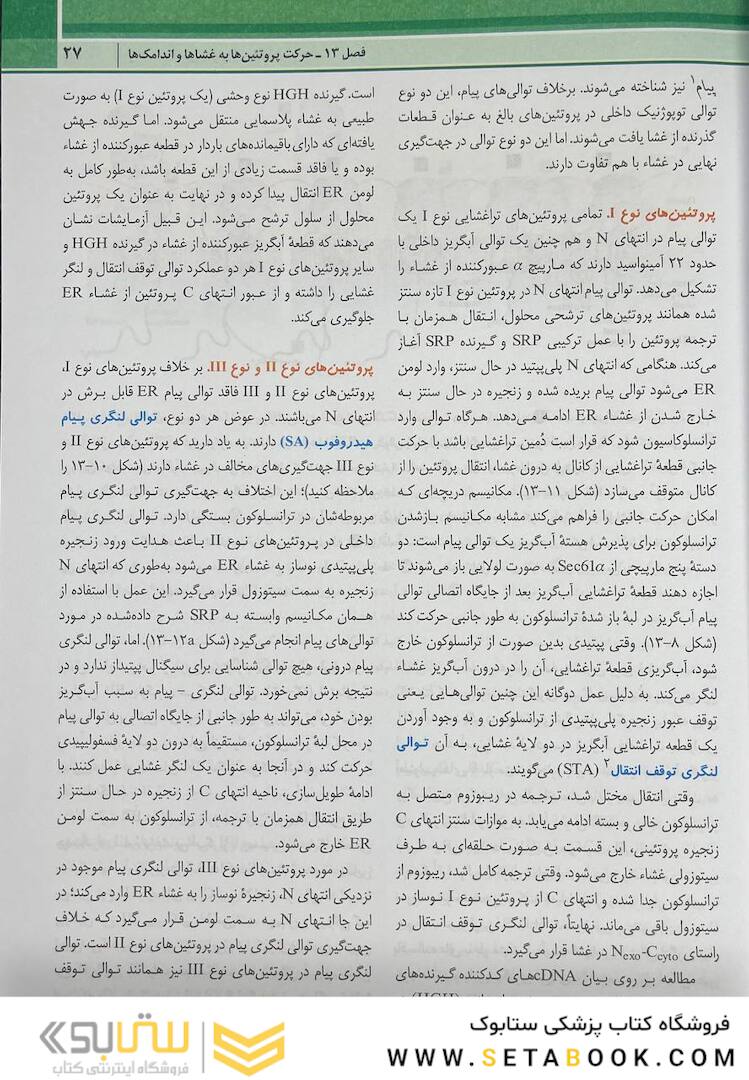 فصل ۱۳ ـ حرکت پروتئین‌ها به غشاها و اندامک‌ها | ۲۷
پیام۱ نیز شناخته می‌شوند. برخلاف توالی‌های پیام، این دو نوع
توالی توپوژنیک داخلی در پروتئین‌های بالغ به عنوان قطعات
گذرنده از غشا یافت می‌شوند. اما این دو نوع توالی در جهت‌گیری
نهایی در غشاء با هم تفاوت دارند.
پروتئین‌های نوع I. تمامی پروتئین‌های تراغشایی نوع I یک
توالی پیام در انتهای N و هم چنین یک توالی آبگریز داخلی با
حدود ۲۲ آمینواسید دارند که مارپیچ α عبورکننده از غشاء را
تشکیل می‌دهد. توالی پیام انتهای N در پروتئین نوع I تازه سنتز
شده همانند پروتئین‌های ترشحی محلول، انتقال همزمان با
ترجمه پروتئین را با عمل ترکیبی SRP و گیرنده SRP آغاز
می‌کند. هنگامی که انتهای N پلی‌پپتید در حال سنتز، وارد لومن
ER می‌شود توالی پیام بریده شده و زنجیره در حال سنتز به
خارج شدن از غشاء ER ادامه می‌دهد. هرگاه توالی وارد
ترانسلوکاسیون شود که قرار است دُمین تراغشایی باشد با حرکت
جانبی قطعهٔ تراغشایی از کانال به درون غشا، انتقال پروتئین را از
کانال متوقف می‌سازد (شکل ۱۱-۱۳). مکانیسم دریچه‌ای که
امکان حرکت جانبی را فراهم می‌کند مشابه مکانیسم بازشدن
ترانسلوکون برای پذیرش هستهٔ آب‌گریز یک توالی پیام است: دو
دستهٔ پنج مارپیچی از Sec61α به صورت لولایی باز می‌شوند تا
اجازه دهند قطعهٔ تراغشایی آب‌گریز بعد از جایگاه اتصالی توالی
پیام آب‌گریز در لبهٔ باز شدهٔ ترانسلوکون به طور جانبی حرکت کند
(شکل ۸-۱۳). وقتی پپتیدی بدین صورت از ترانسلوکون خارج
شود، آب‌گریزی قطعهٔ تراغشایی، آن را در درون آب‌گریز غشاء
لنگر می‌کند. به دلیل عمل دوگانه این چنین توالی‌هایی یعنی
توقف عبور زنجیره پلی‌پپتیدی از ترانسلوکون و به وجود آوردن
یک قطعه تراغشایی آبگریز در دو لایهٔ غشایی، به آن توالی
لنگری توقف انتقال۲ (STA) می‌گویند.
وقتی انتقال مختل شد، ترجمه در ریبوزوم متصل به
ترانسلوکون خالی و بسته ادامه می‌یابد. به موازات سنتز انتهای C
زنجیره پروتئینی، این قسمت به صورت حلقه‌ای به طرف
سیتوزولی غشاء خارج می‌شود. وقتی ترجمه کامل شد، ریبوزوم از
ترانسلوکون جدا شده و انتهای C از پروتئین نوع I نوساز در
سیتوزول باقی می‌ماند. نهایتاً، توالی لنگری توقف انتقال در
راستای Nexo-Ccyto در غشا قرار می‌گیرد.
مطالعه بر روی بیان cDNAهای کدکننده گیرنده‌های
است. گیرنده HGH نوع وحشی (یک پروتئین نوع I) به صورت
طبیعی به غشاء پلاسمایی منتقل می‌شود. اما گیرنده جهش
یافته‌ای که دارای باقیمانده‌های باردار در قطعه عبورکننده از غشاء
بوده و یا فاقد قسمت زیادی از این قطعه باشد، به‌طور کامل به
لومن ER انتقال پیدا کرده و در نهایت به عنوان یک پروتئین
محلول از سلول ترشح می‌شود. این قبیل آزمایشات نشان
می‌دهند که قطعهٔ آبگریز عبورکننده از غشاء در گیرنده HGH و
سایر پروتئین‌های نوع I هر دو عملکرد توالی توقف انتقال و لنگر
غشایی را داشته و از عبور انتهای C پروتئین از غشاء ER
جلوگیری می‌کند.
پروتئین‌های نوع II و نوع III. بر خلاف پروتئین‌های نوع I،
پروتئین‌های نوع II و III فاقد توالی پیام ER قابل برش در
انتهای N می‌باشند. در عوض هر دو نوع، توالی لنگری پیام
هیدروفوب (SA) دارند. به یاد دارید که پروتئین‌های نوع II و
نوع III جهت‌گیری‌های مخالف در غشاء دارند (شکل ۱۰-۱۳ را
ملاحظه کنید)؛ این اختلاف به جهت‌گیری توالی لنگری پیام
مربوطه‌شان در ترانسلوکون بستگی دارد. توالی لنگری پیام
داخلی در پروتئین‌های نوع II باعث هدایت ورود زنجیره
پلی‌پپتیدی نوساز به غشاء ER می‌شود به‌طوری که انتهای N
زنجیره به سمت سیتوزول قرار می‌گیرد. این عمل با استفاده از
همان مکانیسم وابسته به SRP شرح داده‌شده در مورد
توالی‌های پیام انجام می‌گیرد (شکل ۱۲a-۱۳). اما، توالی لنگری
پیام درونی، هیچ توالی شناسایی برای سیگنال پپتیداز ندارد و در
نتیجه برش نمی‌خورد. توالی لنگری – پیام به سبب آب‌گریز
بودن خود، می‌تواند به طور جانبی از جایگاه اتصالی به توالی پیام
در محل لبهٔ ترانسلوکون، مستقیماً به درون دو لایهٔ فسفولیپیدی
حرکت کند و در آنجا به عنوان یک لنگر غشایی عمل کنند. با
ادامهٔ طویل‌سازی، ناحیه انتهای C از زنجیره در حال سنتز از
طریق انتقال همزمان با ترجمه، از ترانسلوکون به سمت لومن
ER خارج می‌شود.
در مورد پروتئین‌های نوع III، توالی لنگری پیام موجود در
نزدیکی انتهای N، زنجیرهٔ نوساز را به غشاء ER وارد می‌کند؛ در
این جا انتهای N به سمت لومن قرار می‌گیرد که خلاف
جهت‌گیری توالی لنگری پیام در پروتئین‌های نوع II است. توالی
لنگری پیام در پروتئین‌های نوع III نیز همانند توالی توقف
فروشگاه کتاب پزشکی ستابوک
WWW.SETABOOK.COM
ستابوک
فروشگاه اینترنتی کتاب